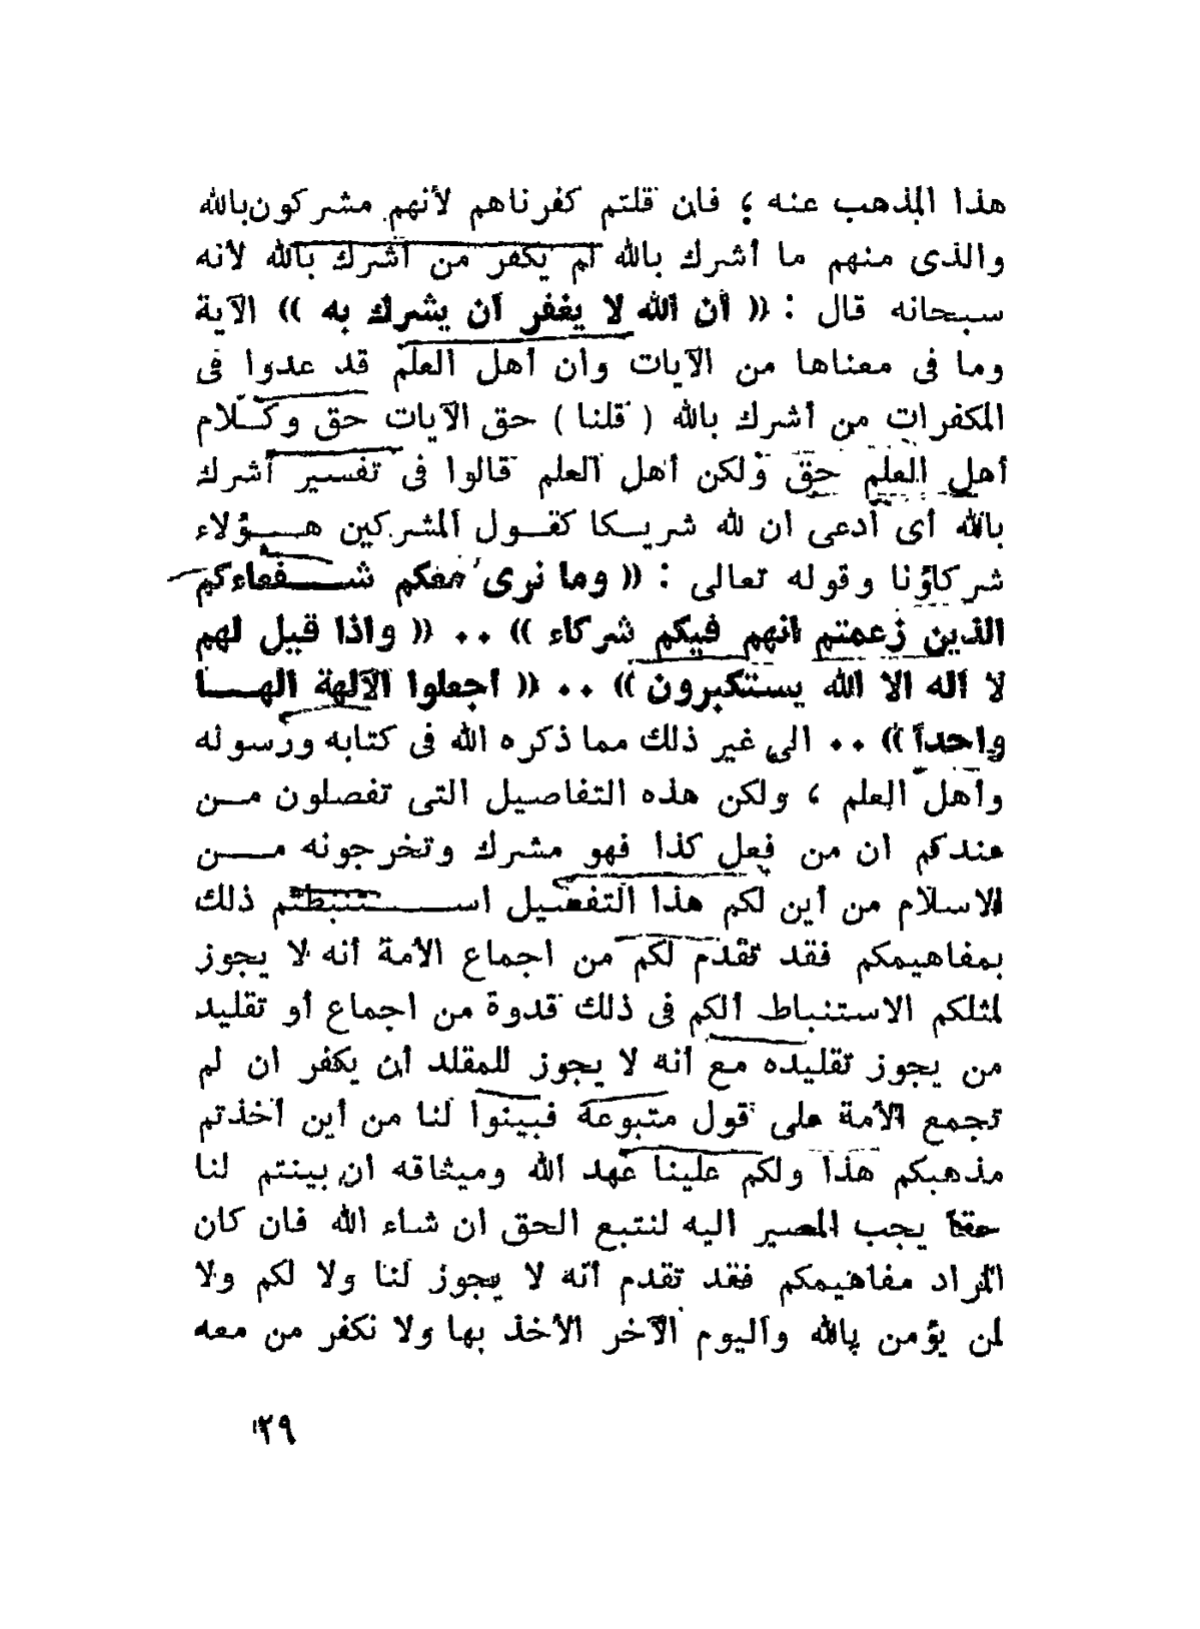 هذا المذهب عنه ؛ فان قلتم كفرناهم لأنهم مشركون بالله
والذى منهم ما أشرك بالله لم يكفر من أشرك بالله لأنه
سبحانه قال : (( أن الله لا يغفر أن يشرك به )) الآية
وما فى معناها من الآيات وأن أهل العلم قد عدوا فى
المكفرات من أشرك بالله ( قلنا ) حق الآيات حق وكلام
أهل العلم حق ولكن أهل العلم قالوا فى تفسير أشرك
بالله أى أدعى أن لله شريكا كقول المشركين هؤلاء
شركاؤنا وقوله تعالى : (( وما نرى معكم شفعاءكم
الذين زعمتم انهم فيكم شركاء )) .. (( واذا قيل لهم
لا اله الا الله يستكبرون )) .. (( أجعلوا الآلهة الها
واحداً )) .. الى غير ذلك مما ذكره الله فى كتابه ورسوله
وأهل العلم ، ولكن هذه التفاصيل التى تفصلون من
عندكم ان من فعل كذا فهو مشرك وتخرجونه من
الاسلام من أين لكم هذا التفصيل استنبطتم ذلك
بمفاهيمكم فقد تقدم لكم من اجماع الأمة أنه لا يجوز
لمثلكم الاستنباط ألكم فى ذلك قدوة من اجماع أو تقليد
من يجوز تقليده مع أنه لا يجوز للمقلد أن يكفر ان لم
تجمع الأمة على قول متبوعة فبينوا لنا من أين أخذتم
مذهبكم هذا ولكم علينا عهد الله وميثاقه ان بينتم لنا
حقا يجب المصير اليه لنتبع الحق ان شاء الله فان كان
المراد مفاهيمكم فقد تقدم أنه لا يجوز لنا ولا لكم ولا
لمن يؤمن بالله واليوم الآخر الأخذ بها ولا نكفر من معه
١٢٩